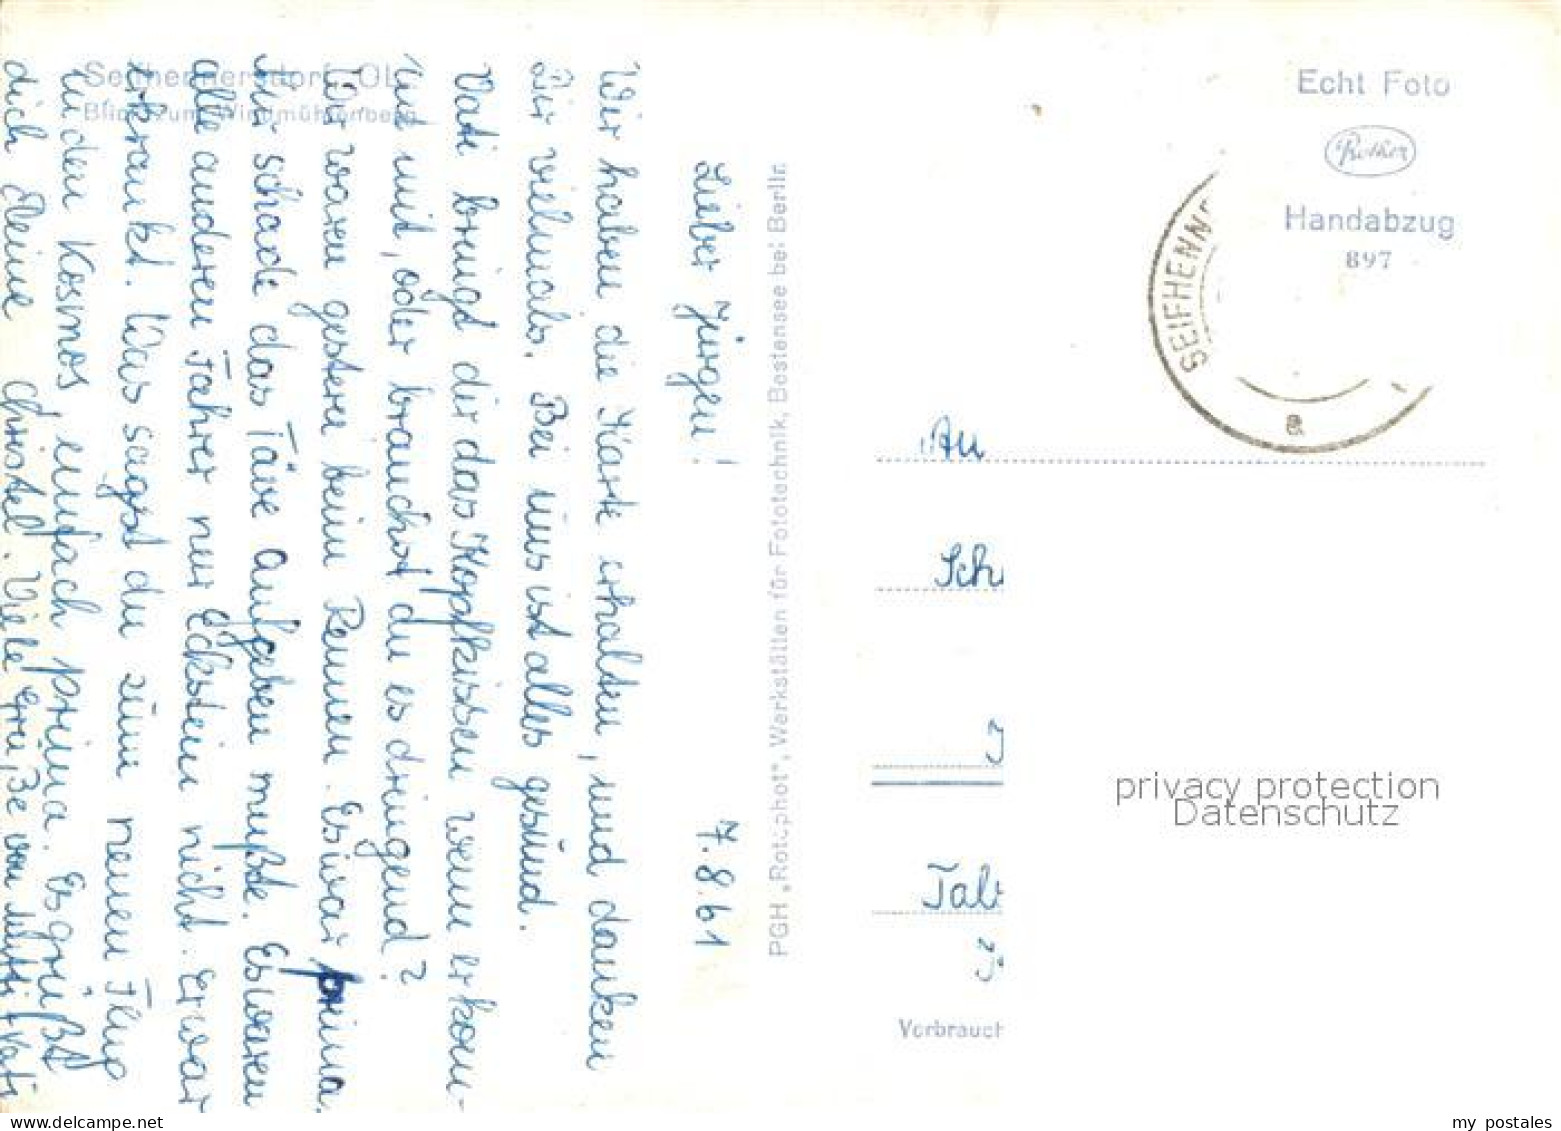 Seifhennersdorf OL
Blick zum Windmühlenberg
Lieber Jürgen! 7.8.61
Wir haben die Karte erhalten, und danken
Dir vielmals. Bei uns ist alles gesund.
Vati bringt dir das Kopfkissen wenn er kom-
mt mit, oder brauchst du es dringend?
Wir waren gestern beim Rennen. Es war prima.
Nur schade das Täve aufgeben mußte. Es waren
alle anderen Fahrer nur Eckstein nicht. Er war
erkrankt. Was sagst du zum neuen Flug
in den Kosmos, einfach prima. Es grüßt
dich Deine Christel. Viele Grüße von Mutti + Vati
PGH „Rotophot", Werkstätten für Fototechnik, Bestensee bei Berlin
Echt Foto
Rother
Handabzug
897
SEIFHENN
a
An
Sch
J
privacy protection
Datenschutz
Tal
Verbrauch
my postales